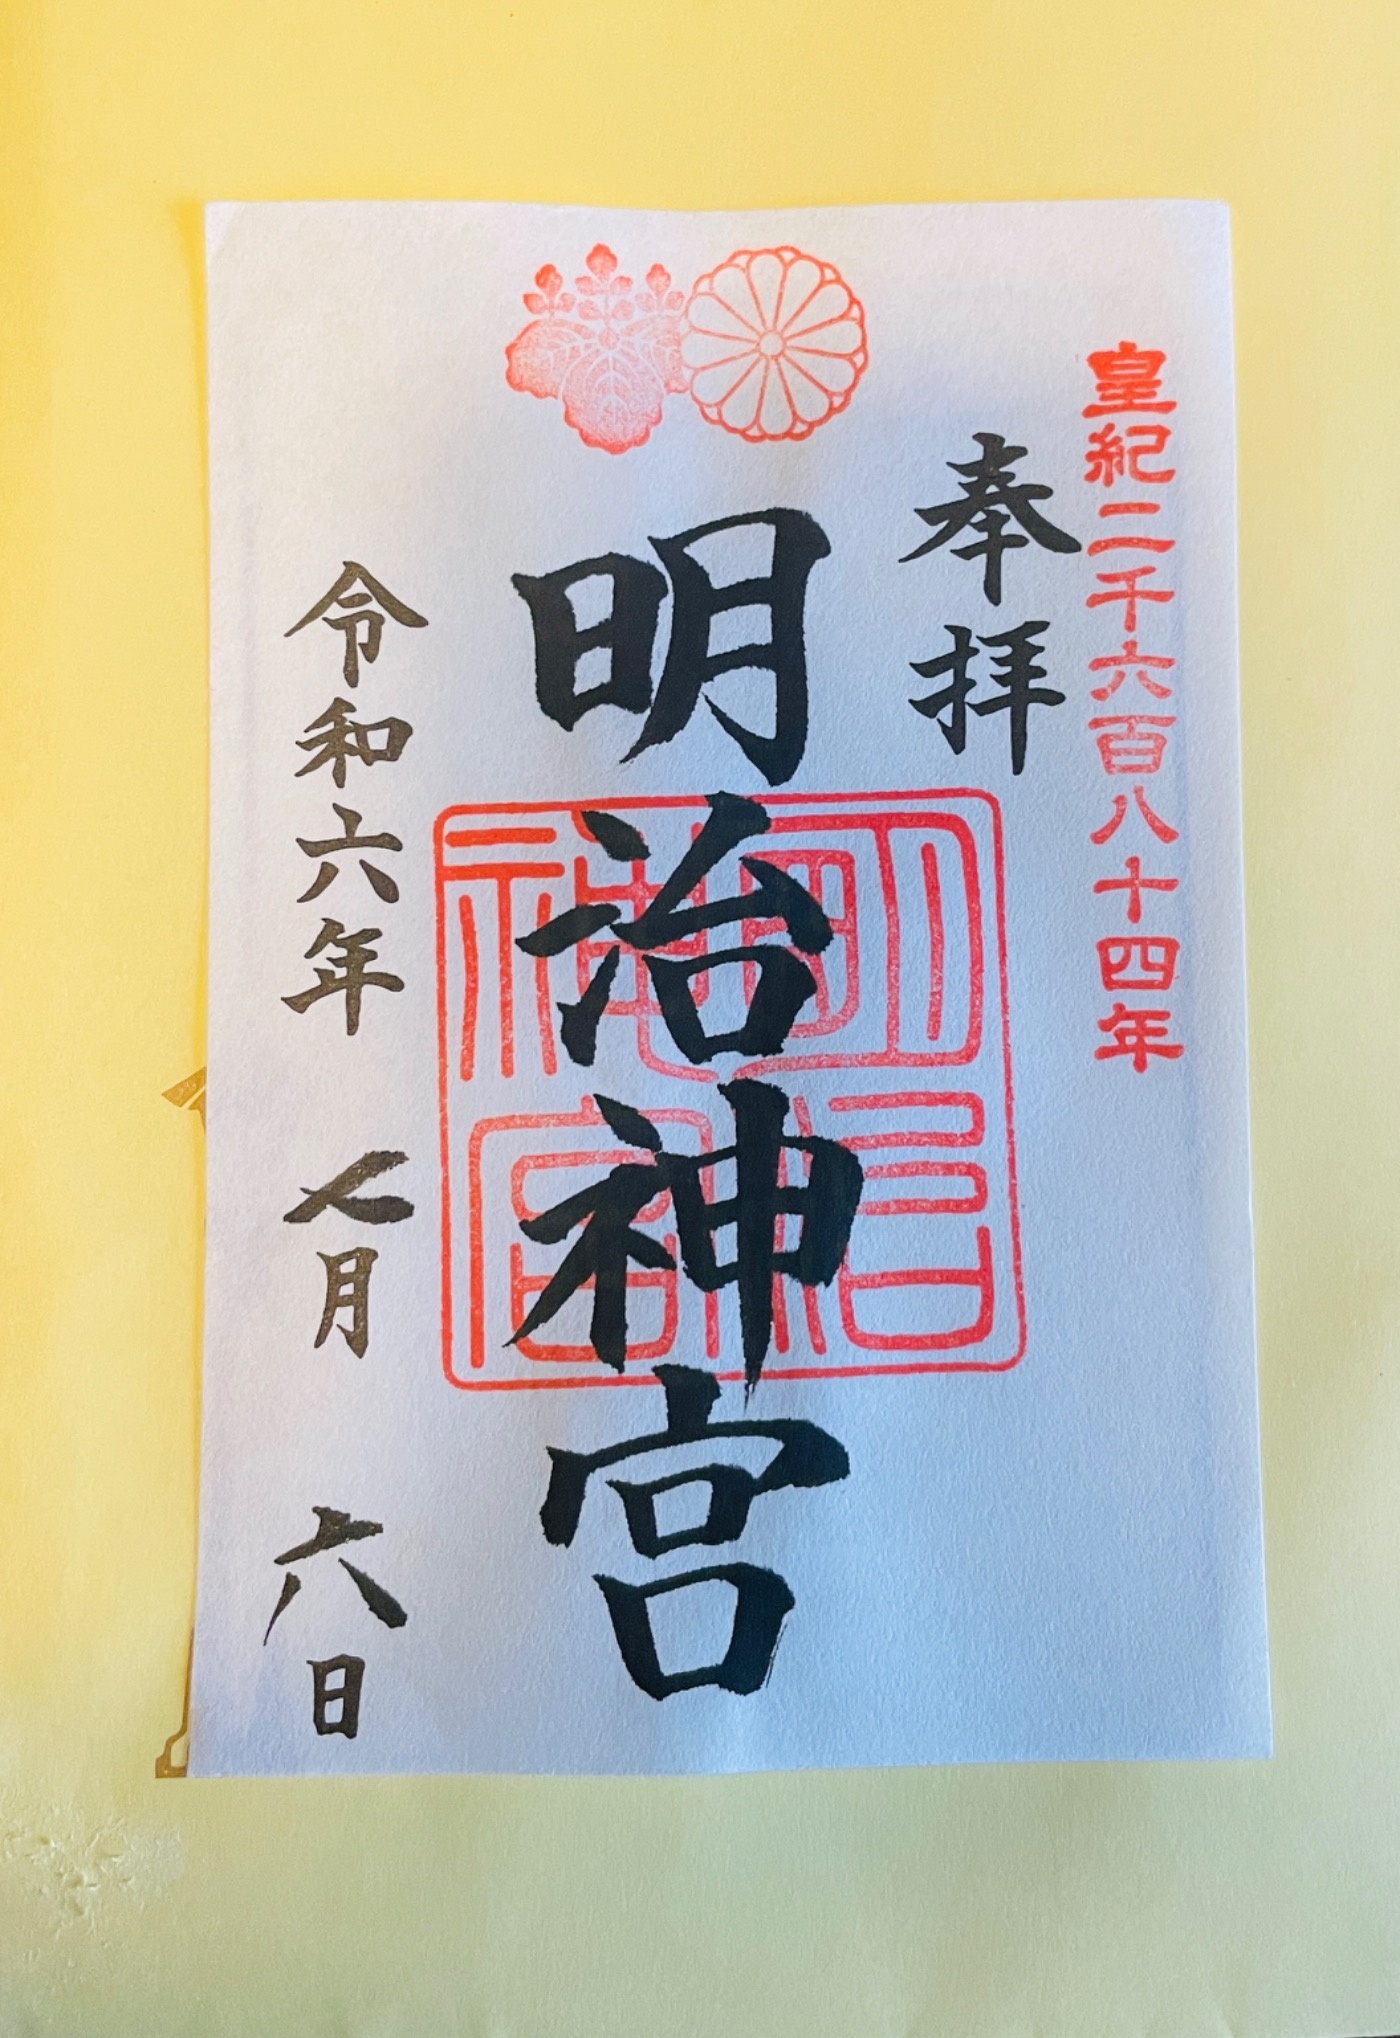 皇紀二千六百八十四年
奉拝
明治神宮
明治神宮
令和六年 七月 六日